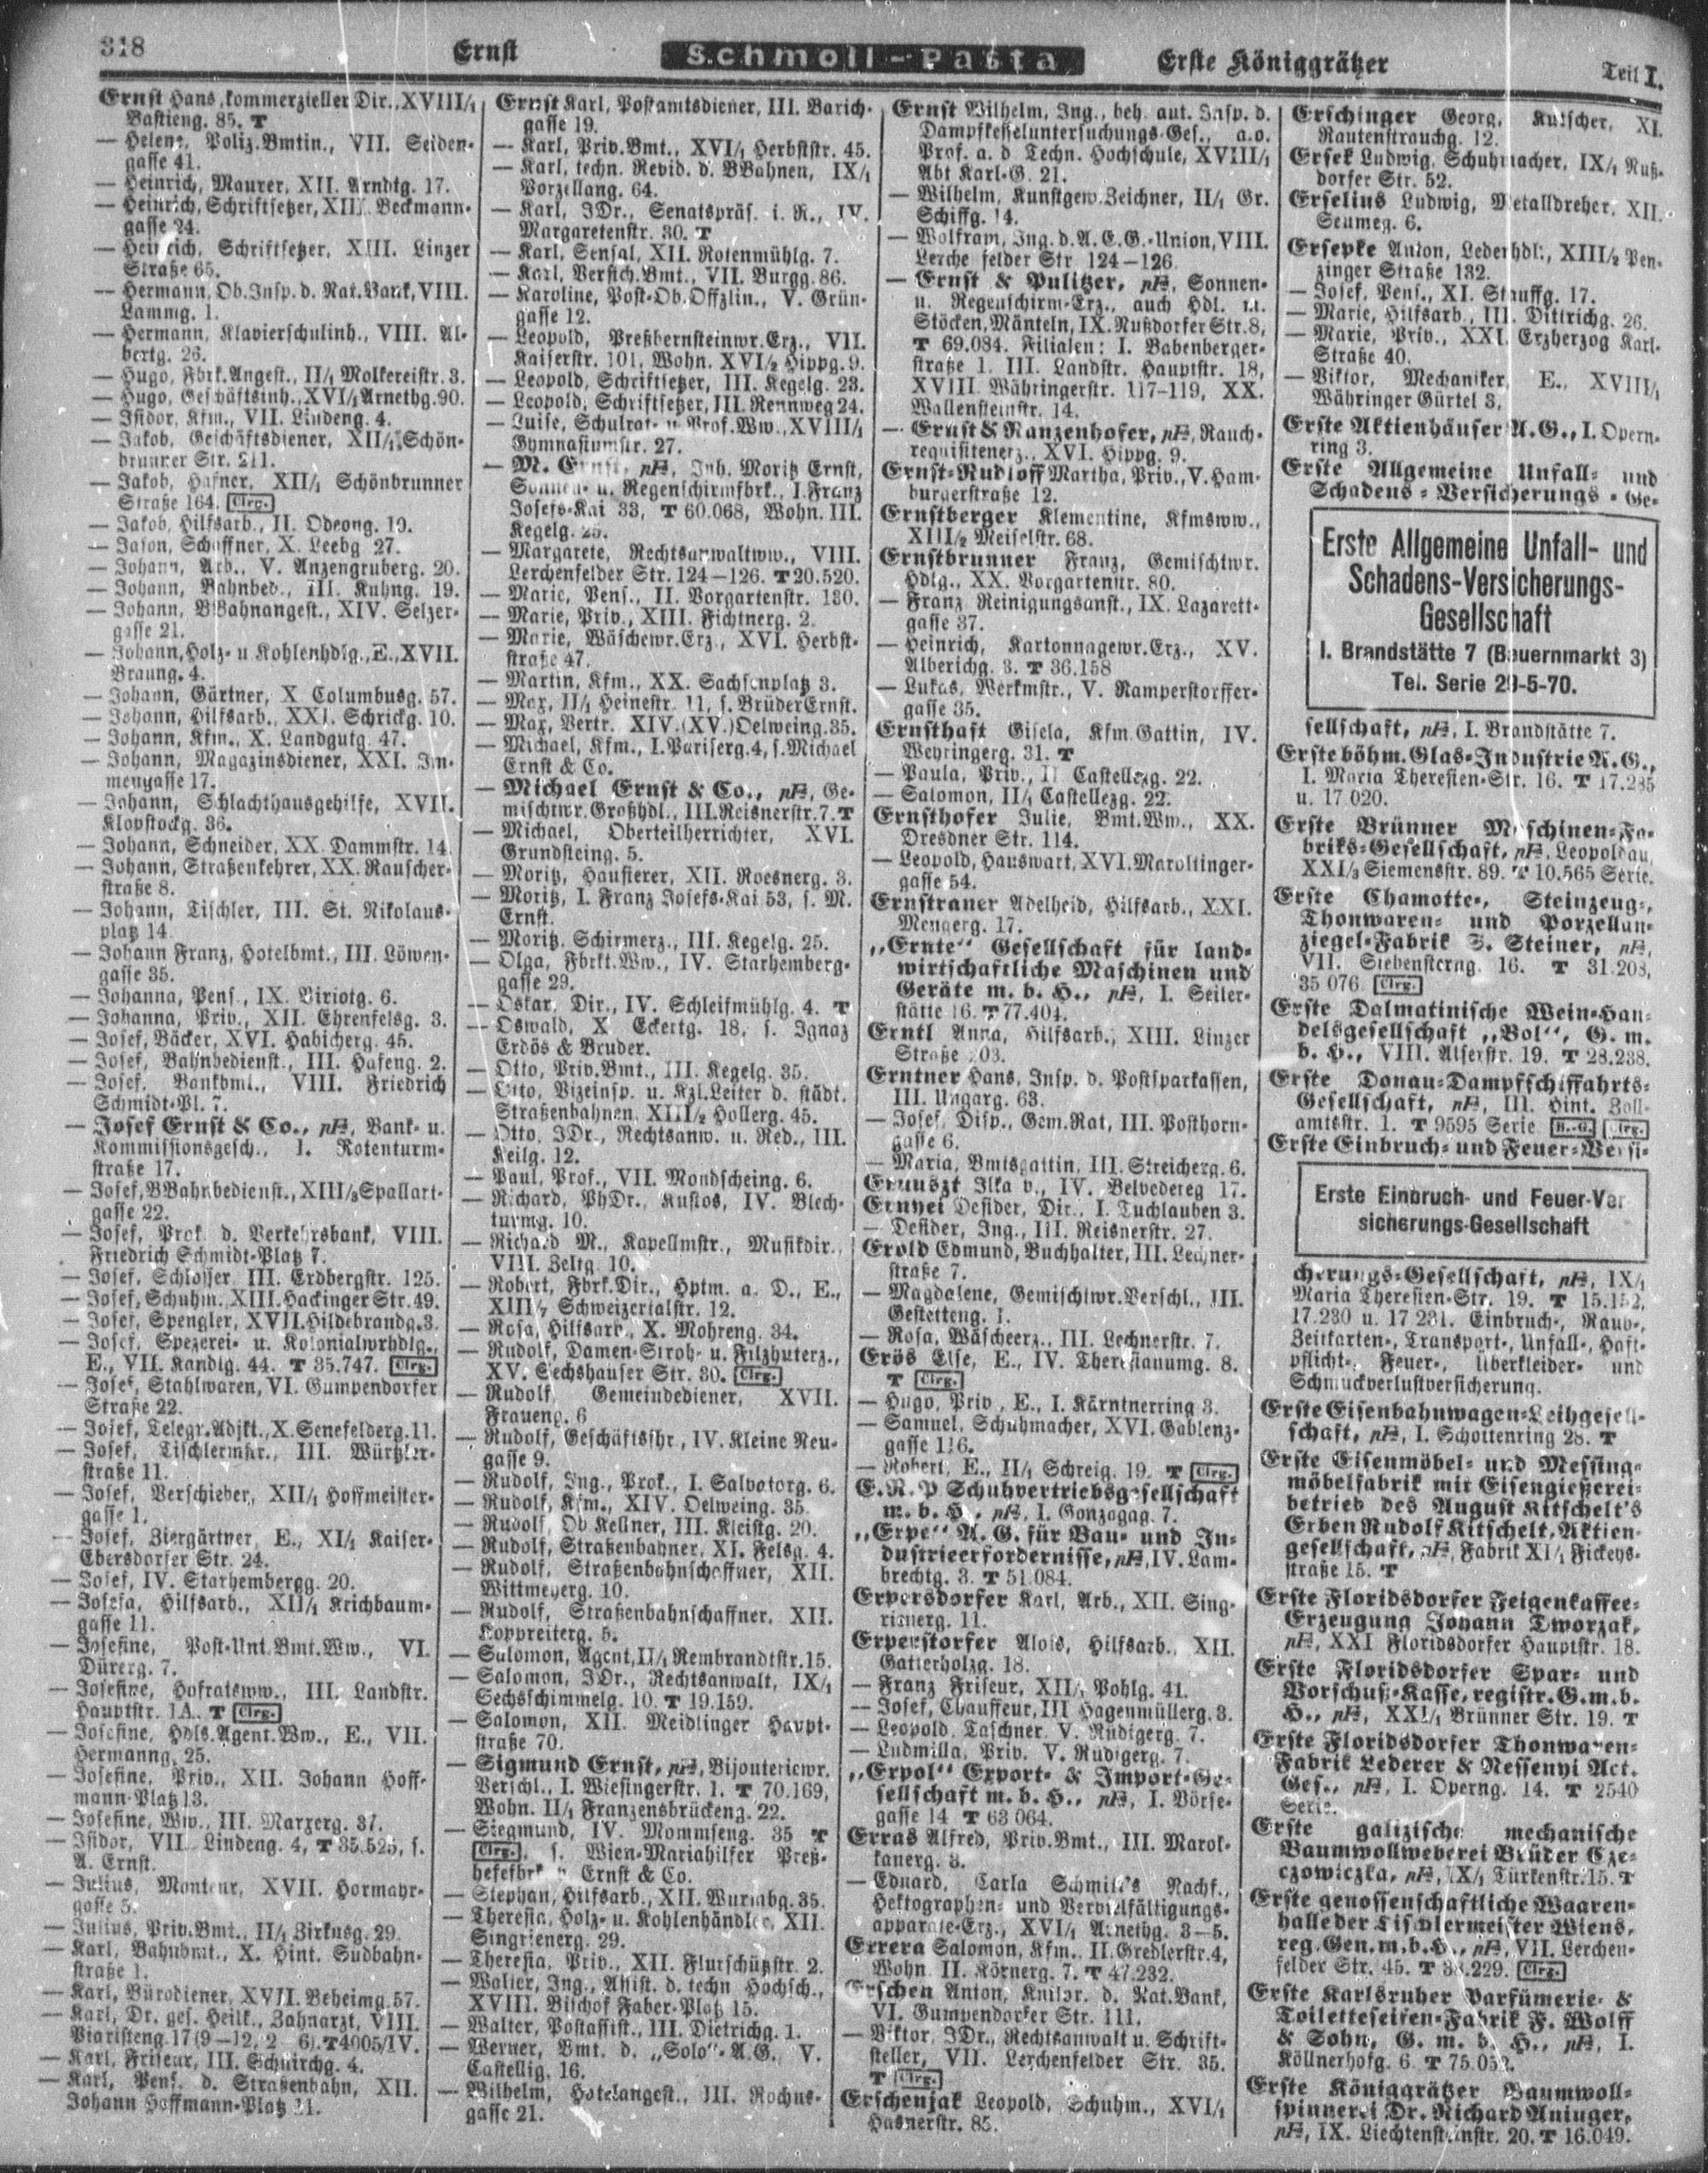 318
Ernst
Schmoll-Pasta
Erste Königgrätzer
Teil I.
Ernst Hans, kommerzieller Dir., XVIII/1
Bastieng. 85. T
— Helene, Poliz.Bmtin., VII. Seiden-
gasse 41.
— Heinrich, Maurer, XII. Arndtg. 17.
— Heinrich, Schriftsetzer, XII. Beckmann-
gasse 24.
— Heinrich, Schriftsetzer, XIII. Linzer
Straße 65.
— Hermann, Ob.Insp. d. Nat.Bank, VIII.
Lammg. 1.
— Hermann, Klavierschulinh., VIII. Al-
bertg. 26.
— Hugo, Fbrk.Angest., II/1 Molkereistr. 3.
— Hugo, Geschäftsinh., XVI/1 Arnethg. 90.
— Isidor, Kfm., VII. Lindeng. 4.
— Jakob, Geschäftsdiener, XII/1 Schön-
brunner Str. 211.
— Jakob, Hafner, XII/1 Schönbrunner
Straße 164. Clrg.
— Jakob, Hilfsarb., II. Odeong. 10.
— Jason, Schaffner, X. Leebg 27.
— Johann, Arb., V. Anzengruberg. 20.
— Johann, Bahnbed., III. Kuhng. 19.
— Johann, BBahnangest., XIV. Selzer-
gasse 21.
— Johann, Holz- u Kohlenhdlg., E., XVII.
Braung. 4.
— Johann, Gärtner, X Columbusg. 57.
— Johann, Hilfsarb., XXI. Schrickg. 10.
— Johann, Kfm., X. Landgutg. 47.
— Johann, Magazinsdiener, XXI. Im-
mengasse 17.
— Johann, Schlachthausgehilfe, XVII.
Klopstockg. 36.
— Johann, Schneider, XX. Dammstr. 14
— Johann, Straßenkehrer, XX. Rauscher-
straße 8.
— Johann, Tischler, III. St. Nikolaus-
platz 14
— Johann Franz, Hotelbmt., III. Löwen-
gasse 35.
— Johanna, Pens., IX. Viriotg. 6.
— Johanna, Priv., XII. Ehrenfelsg. 3.
— Josef, Bäcker, XVI. Habicherg. 45.
— Josef, Bahnbedienst., III. Hafeng. 2.
— Josef, Bankbmt., VIII. Friedrich
Schmidt-Pl. 7.
— Josef Ernst & Co., pF, Bank- u.
Kommissionsgesch., I. Rotenturm-
straße 17.
— Josef, BBahnbedienst., XIII/3 Spallart-
gasse 22.
— Josef, Prok. d. Verkehrsbank, VIII.
Friedrich Schmidt-Platz 7.
— Josef, Schlosser III. Erdbergstr. 125.
— Josef, Schuhm. XIII. Hackinger Str. 49.
— Josef, Spengler, XVII. Hildebrandg. 3.
— Josef, Spezerei- u. Kolonialwrhdlg.,
E., VII. Kandlg. 44. T 35.747. Clrg.
— Josef, Stahlwaren, VI. Gumpendorfer
Straße 22.
— Josef, Telegr.Adjkt., X. Senefelderg. 11.
— Josef, Tischlermstr., III. Würtzler-
straße 11.
— Josef, Verschieber, XII/1 Hoffmeister-
gasse 1.
— Josef, Ziergärtner, E., XI/1 Kaiser-
Ebersdorfer Str. 24.
— Josef, IV. Starhembergg. 20.
— Josefa, Hilfsarb., XII/1 Krichbaum-
gasse 11.
— Josefine, Post-Unt.Bmt.Ww., VI.
Dürerg. 7.
— Josefine, Hofratsww., III. Landstr.
Hauptstr. 1A. T Clrg.
— Josefine, Hdls.Agent.Ww., E., VII.
Hermanng. 25.
— Josefine, Priv., XII. Johann Hoff-
mann-Platz 13.
— Josefine, Ww., III. Marxerg. 37.
— Isidor, VII. Lindeng. 4, T 35.525, s.
A. Ernst.
— Julius, Monteur, XVII. Hormayr-
gasse 5.
— Julius, Priv.Bmt., II/1 Zirkusg. 29.
— Karl, Bahnbmt., X. Hint. Südbahn-
straße 1.
— Karl, Bürodiener, XVII. Beheimg. 57.
— Karl, Dr. ges. Heilk., Zahnarzt, VIII.
Piaristeng. 17 (9—12, 2—6). T 4005/IV.
— Karl, Friseur, III. Schnirchg. 4.
— Karl, Pens. d. Straßenbahn, XII.
Johann Hoffmann-Platz 11.
Ernst Karl, Postamtsdiener, III. Barich-
gasse 19.
— Karl, Priv.Bmt., XVI/1 Herbststr. 45.
— Karl, techn. Revid. d. BBahnen, IX/1
Porzellang. 64.
— Karl, JDr., Senatspräs. i. R., IV.
Margaretenstr. 30. T
— Karl, Sensal, XII. Rotenmühlg. 7.
— Karl, Versich.Bmt., VII. Burgg. 86.
— Karoline, Post-Ob.Offzlin., V. Grün-
gasse 12.
— Leopold, Preßbernsteinwr.Erz., VII.
Kaiserstr. 101, Wohn. XVI/2 Hippg. 9.
— Leopold, Schriftsetzer, III. Kegelg. 23.
— Leopold, Schriftsetzer, III. Rennweg 24.
— Luise, Schulrat- u. Prof.Ww., XVIII/1
Gymnasiumstr. 27.
— M. Ernst, pF, Inh. Moritz Ernst,
Sonnen- u. Regenschirmfbrk., I. Franz
Josefs-Kai 33, T 60.068, Wohn. III.
Kegelg. 25.
— Margarete, Rechtsanwaltww., VIII.
Lerchenfelder Str. 124—126. T 20.520.
— Marie, Pens., II. Vorgartenstr. 130.
— Marie, Priv., XIII. Fichtnerg. 2.
— Marie, Wäschewr.Erz., XVI. Herbst-
straße 47.
— Martin, Kfm., XX. Sachsenplatz 3.
— Max, II/1 Heinestr. 11, s. Brüder Ernst.
— Max, Vertr. XIV. (XV.) Oelweing. 35.
— Michael, Kfm., I. Pariserg. 4, s. Michael
Ernst & Co.
— Michael Ernst & Co., pF, Ge-
mischtwr.Großhdl., III. Reisnerstr. 7. T
— Michael, Oberteilherrichter, XVI.
Grundsteing. 5.
— Moritz, Hausierer, XII. Roesnerg. 3.
— Moritz, I. Franz Josefs-Kai 53, s. M.
Ernst.
— Moritz, Schirmerz., III. Kegelg. 25.
— Olga, Fbrkt.Ww., IV. Starhemberg-
gasse 29.
— Oskar, Dir., IV. Schleifmühlg. 4. T
— Oswald, X Eckertg. 18, s. Ignaz
Erdös & Bruder.
— Otto, Priv.Bmt., III. Kegelg. 35.
— Otto, Vizeinsp. u. Kzl.Leiter d. städt.
Straßenbahnen, XIII/2 Hollerg. 45.
— Otto, JDr., Rechtsanw. u. Red., III.
Keilg. 12.
— Paul, Prof., VII. Mondscheing. 6.
— Richard, PhDr., Kustos, IV. Blech-
turmg. 10.
— Richard M., Kapellmstr., Musikdir.,
VIII. Zeltg. 10.
— Robert, Fbrk.Dir., Hptm. a. D., E.,
XIII/7 Schweizertalstr. 12.
— Rosa, Hilfsarb., X. Mohreng. 34.
— Rudolf, Damen-Stroh- u. Filzhuterz.,
XV. Sechshauser Str. 30. Clrg.
— Rudolf, Gemeindediener, XVII.
Fraueng. 6
— Rudolf, Geschäftsfhr., IV. Kleine Neu-
gasse 9.
— Rudolf, Ing., Prok., I. Salvatorg. 6.
— Rudolf, Kfm., XIV. Oelweing. 35.
— Rudolf, Ob.Kellner, III. Kleistg. 20.
— Rudolf, Straßenbahner, XI. Felsg. 4.
— Rudolf, Straßenbahnschaffner, XII.
Wittmeyerg. 10.
— Rudolf, Straßenbahnschaffner, XII.
Koppreiterg. 5.
— Salomon, Agent, II/1 Rembrandtstr. 15.
— Salomon, JDr., Rechtsanwalt, IX/1
Sechsschimmelg. 10. T 19.159.
— Salomon, XII. Meidlinger Haupt-
straße 70.
— Sigmund Ernst, pF, Bijouteriewr.
Verschl., I. Wiesingerstr. 1. T 70.169,
Wohn. II/1 Franzensbrückeng. 22.
— Siegmund, IV. Mommseng. 35 T
Clrg., s. Wien-Mariahilfer Preß-
hefefbrk Ernst & Co.
— Stephan, Hilfsarb., XII. Wurmbg. 35.
— Theresia, Holz- u. Kohlenhändler, XII.
Singrienerg. 29.
— Theresia, Priv., XII. Flurschützstr. 2.
— Walter, Ing., Assist. d. techn Hochsch.,
XVIII. Bischof Faber-Platz 15.
— Walter, Postassist., III. Dietrichg. 1.
— Werner, Bmt. d. „Solo"-A.G., V.
Castellig. 16.
— Wilhelm, Hotelangest., III. Rochus-
gasse 21.
Ernst Wilhelm, Ing., beh. aut. Insp. d.
Dampfkesseluntersuchungs-Ges., a.o.
Prof. a. d Techn. Hochschule, XVIII/1
Abt Karl-G. 21.
— Wilhelm, Kunstgew.Zeichner, II/1 Gr.
Schiffg. 14.
— Wolfram, Ing. d. A. E. G.-Union, VIII.
Lerchenfelder Str 124—126.
— Ernst & Pulitzer, pF, Sonnen-
u. Regenschirm-Erz., auch Hdl. m.
Stöcken, Mänteln, IX. Nußdorfer Str. 8,
T 69.084. Filialen: I. Babenberger-
straße 1. III. Landstr. Hauptstr. 18,
XVIII. Währingerstr. 117-119, XX.
Wallensteinstr. 14.
— Ernst & Ranzenhofer, pF, Rauch-
requisitenerz., XVI. Hippg. 9.
Ernst-Rudloff Martha, Priv., V. Ham-
burgerstraße 12.
Ernstberger Klementine, Kfmsww.,
XIII/2 Meiselstr. 68.
Ernstbrunner Franz, Gemischtwr.
Hdlg., XX. Vorgartenstr. 80.
— Franz Reinigungsanst., IX. Lazarett-
gasse 37.
— Heinrich, Kartonnagewr.Erz., XV.
Alberichg. 3. T 36.158
— Lukas, Werkmstr., V. Ramperstorffer-
gasse 35.
Ernsthaft Gisela, Kfm.Gattin, IV.
Weyringerg. 31. T
— Paula, Priv., II Castellezg. 22.
— Salomon, II/1 Castellezg. 22.
Ernsthofer Julie, Bmt.Ww., XX.
Dresdner Str. 114.
— Leopold, Hauswart, XVI. Maroltinger-
gasse 54.
Ernstraner Adelheid, Hilfsarb., XXI.
Mengerg. 17.
„Ernte" Gesellschaft für land-
wirtschaftliche Maschinen und
Geräte m. b. H., pF, I. Seiler-
stätte 16. T 77.404.
Erntl Anna, Hilfsarb., XIII. Linzer
Straße 203.
Erntner Hans, Insp. d. Postsparkassen,
III. Ungarg. 63.
— Josef, Disp., Gem.Rat, III. Posthorn-
gasse 6.
— Maria, Bmtsgattin, III. Streicherg. 6.
Ernuszt Ilka v., IV. Belvedereg 17.
Ernyei Desider, Dir., I. Tuchlauben 3.
— Desider, Ing., III. Reisnerstr. 27.
Erold Edmund, Buchhalter, III. Lechner-
straße 7.
— Magdalene, Gemischtwr.Verschl., III.
Gestetteng. 1.
— Rosa, Wäscheerz., III. Lechnerstr. 7.
Erös Else, E., IV. Theresianumg. 8.
T Clrg.
— Hugo, Priv., E., I. Kärntnerring 3.
— Samuel, Schuhmacher, XVI. Gablenz-
gasse 116.
— Robert, E., II/1 Schreig. 19. T Clrg.
E. R. P. Schuhvertriebsgesellschaft
m. b. H., pF, I. Gonzagag. 7.
„Erpe" A. G. für Bau- und In-
dustrieerfordernisse, pF, IV. Lam-
brechtg. 3. T 51.084.
Erpersdorfer Karl, Arb., XII. Sing-
rienerg. 11.
Erperstorfer Alois, Hilfsarb., XII.
Gatterholzg. 18.
— Franz Friseur, XII/1 Pohlg. 41.
— Josef, Chauffeur, III Hagenmüllerg. 3.
— Leopold. Taschner. V. Rüdigerg. 7.
— Ludmilla, Priv. V. Rüdigerg. 7.
„Erpol" Export- & Import-Ge-
sellschaft m. b. H., pF, I. Börse-
gasse 14 T 63 064.
Erras Alfred, Priv.Bmt., III. Marok-
kanerg. 3.
— Eduard, Carla Schmitt's Nachf.,
Hektographen- und Vervielfältigungs-
apparate-Erz., XVI/1 Arnethg. 3—5.
Errera Salomon, Kfm., II. Gredlerstr. 4,
Wohn. II. Körnerg. 7. T 47.232.
Erschen Anton, Knilbr. d. Nat.Bank,
VI. Gumpendorfer Str. 111.
— Viktor, JDr., Rechtsanwalt u. Schrift-
steller, VII. Lerchenfelder Str. 35.
T Clrg.
Erschenjak Leopold, Schuhm., XVI/1
Hasnerstr. 85.
Erschinger Georg, Kutscher, XI.
Rautenstrauchg. 12.
Ersek Ludwig, Schuhmacher, IX/1 Nuß-
dorfer Str. 52.
Erselius Ludwig, Metalldreher, XII.
Seumeg. 6.
Ersepke Anton, Lederhdl., XIII/2 Pen-
zinger Straße 132.
— Josef, Pens., XI. Stauffg. 17.
— Marie, Hilfsarb., III. Dittrichg. 26.
— Marie, Priv., XXI. Erzherzog Karl-
Straße 40.
— Viktor, Mechaniker, E., XVIII/1
Währinger Gürtel 3.
Erste Aktienhäuser A. G., I. Opern-
ring 3.
Erste Allgemeine Unfall- und
Schadens-Versicherungs-Ge-
Erste Allgemeine Unfall- und
Schadens-Versicherungs-
Gesellschaft
I. Brandstätte 7 (Bauernmarkt 3)
Tel. Serie 29-5-70.
sellschaft, pF, I. Brandstätte 7.
Erste böhm. Glas-Industrie A. G.,
I. Maria Theresien-Str. 16. T 17.285
u. 17 020.
Erste Brünner Maschinen-Fa-
briks-Gesellschaft, pF, Leopoldau,
XXI/3 Siemensstr. 89. T 10.565 Serie.
Erste Chamotte-, Steinzeug-,
Thonwaren- und Porzellan-
ziegel-Fabrik S. Steiner, pF,
VII. Siebensterng. 16. T 31.208,
35 076. Clrg.
Erste Dalmatinische Wein-Han-
delsgesellschaft „Bol", G. m.
b. H., VIII. Alserstr. 19. T 28.238.
Erste Donau-Dampfschiffahrts-
Gesellschaft, pF, III. Hint. Zoll-
amtsstr. 1. T 9595 Serie. Clrg.
Erste Einbruch- und Feuer-Versi-
Erste Einbruch- und Feuer-Ver
sicherungs-Gesellschaft
cherungs-Gesellschaft, pF, IX/1
Maria Theresien-Str. 19. T 15.152,
17.230 u. 17 231. Einbruch-, Raub-,
Zeitkarten-, Transport-, Unfall-, Haft-
pflicht-, Feuer-, Überkleider- und
Schmuckverlustversicherung.
Erste Eisenbahnwagen-Leihgesell-
schaft, pF, I. Schottenring 28. T
Erste Eisenmöbel- und Messing-
möbelfabrik mit Eisengießerei-
betrieb des August Kitschelt's
Erben Rudolf Kitschelt, Aktien-
gesellschaft, pF, Fabrik XI/1 Fickeys-
straße 15. T
Erste Floridsdorfer Feigenkaffee-
Erzeugung Johann Tworzak,
pF, XXI Floridsdorfer Hauptstr. 18.
Erste Floridsdorfer Spar- und
Vorschuß-Kasse, registr. G. m. b.
H., pF, XXI/1 Brünner Str. 19. T
Erste Floridsdorfer Thonwaren-
Fabrik Lederer & Nessenyi Act.
Ges., pF, I. Operng. 14. T 2540
Serie.
Erste galizische mechanische
Baumwollweberei Brüder Cze-
czowiczka, pF, IX/1 Türkenstr. 15. T
Erste genossenschaftliche Waaren-
halle der Tischlermeister Wiens,
reg. Gen. m. b. H., pF, VII. Lerchen-
felder Str. 45. T 38.229. Clrg.
Erste Karlsruher Parfümerie- &
Toiletteseifen-Fabrik F. Wolff
& Sohn, G. m. b. H., pF, I.
Köllnerhofg. 6. T 75.052.
Erste Königgrätzer Baumwoll-
spinnerei Dr. Richard Aninger,
pF, IX. Liechtensteinstr. 20. T 16.049.